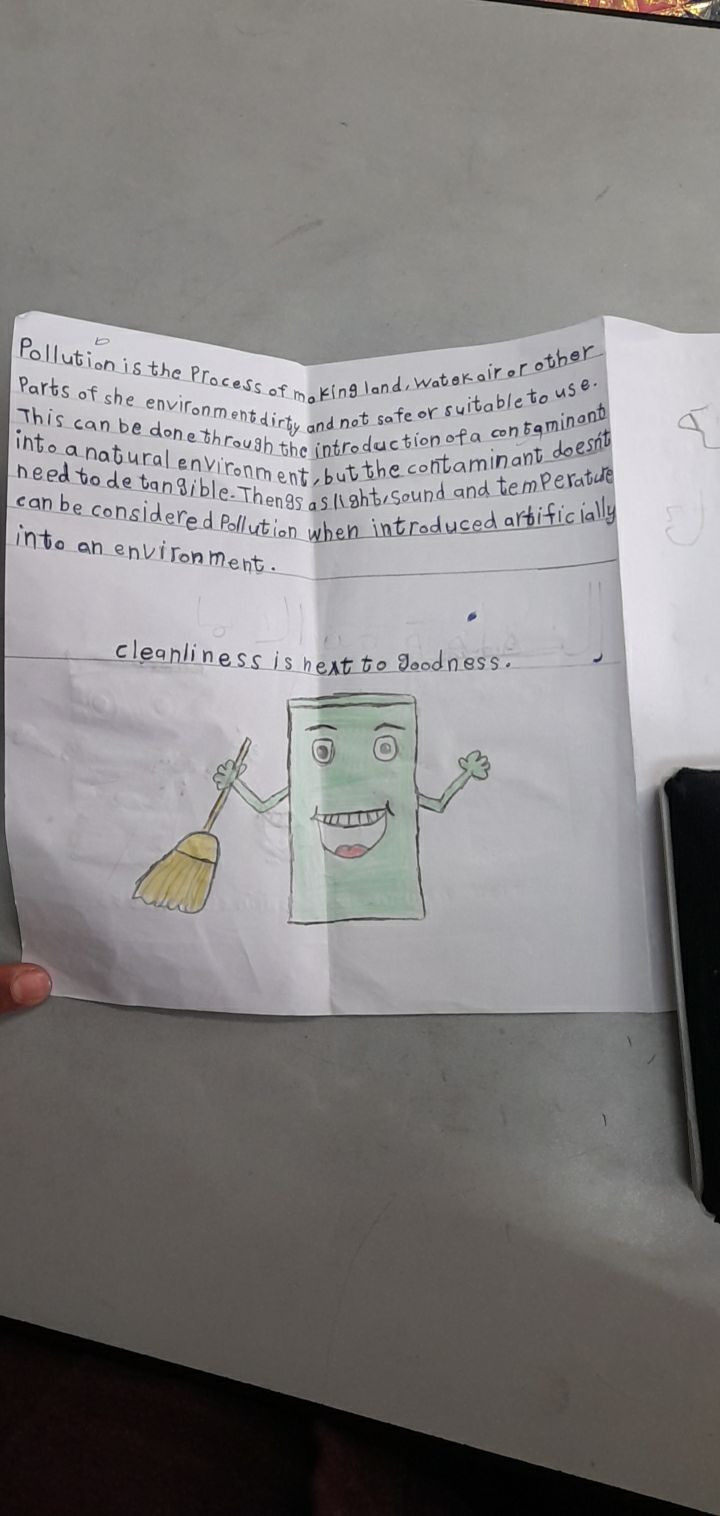 Pollution is the Process of making land, water air or other
Parts of she environment dirty and not safe or suitable to use.
This can be done through the introduction of a contaminant
into a natural environment, but the contaminant doesn't
need to de tangible. Thengs as light, sound and temperature
can be considered Pollution when introduced artificially
into an environment.
cleanliness is next to goodness.